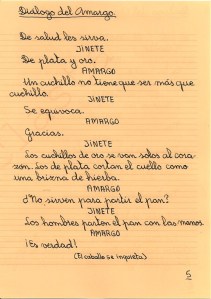 Diálogo del Amargo.
De salud les sirva.
JINETE
De plata y oro.
AMARGO
Un cuchillo no tiene que ser más que
cuchillo.
JINETE
Se equivoca.
AMARGO
Gracias.
JINETE
Los cuchillos de oro se van solos al cora-
zón. Los de plata cortan el cuello como
una brizna de hierba.
AMARGO
¿No sirven para partir el pan?
JINETE
Los hombres parten el pan con las manos.
AMARGO
¡Es verdad!
(El caballo se inquieta)